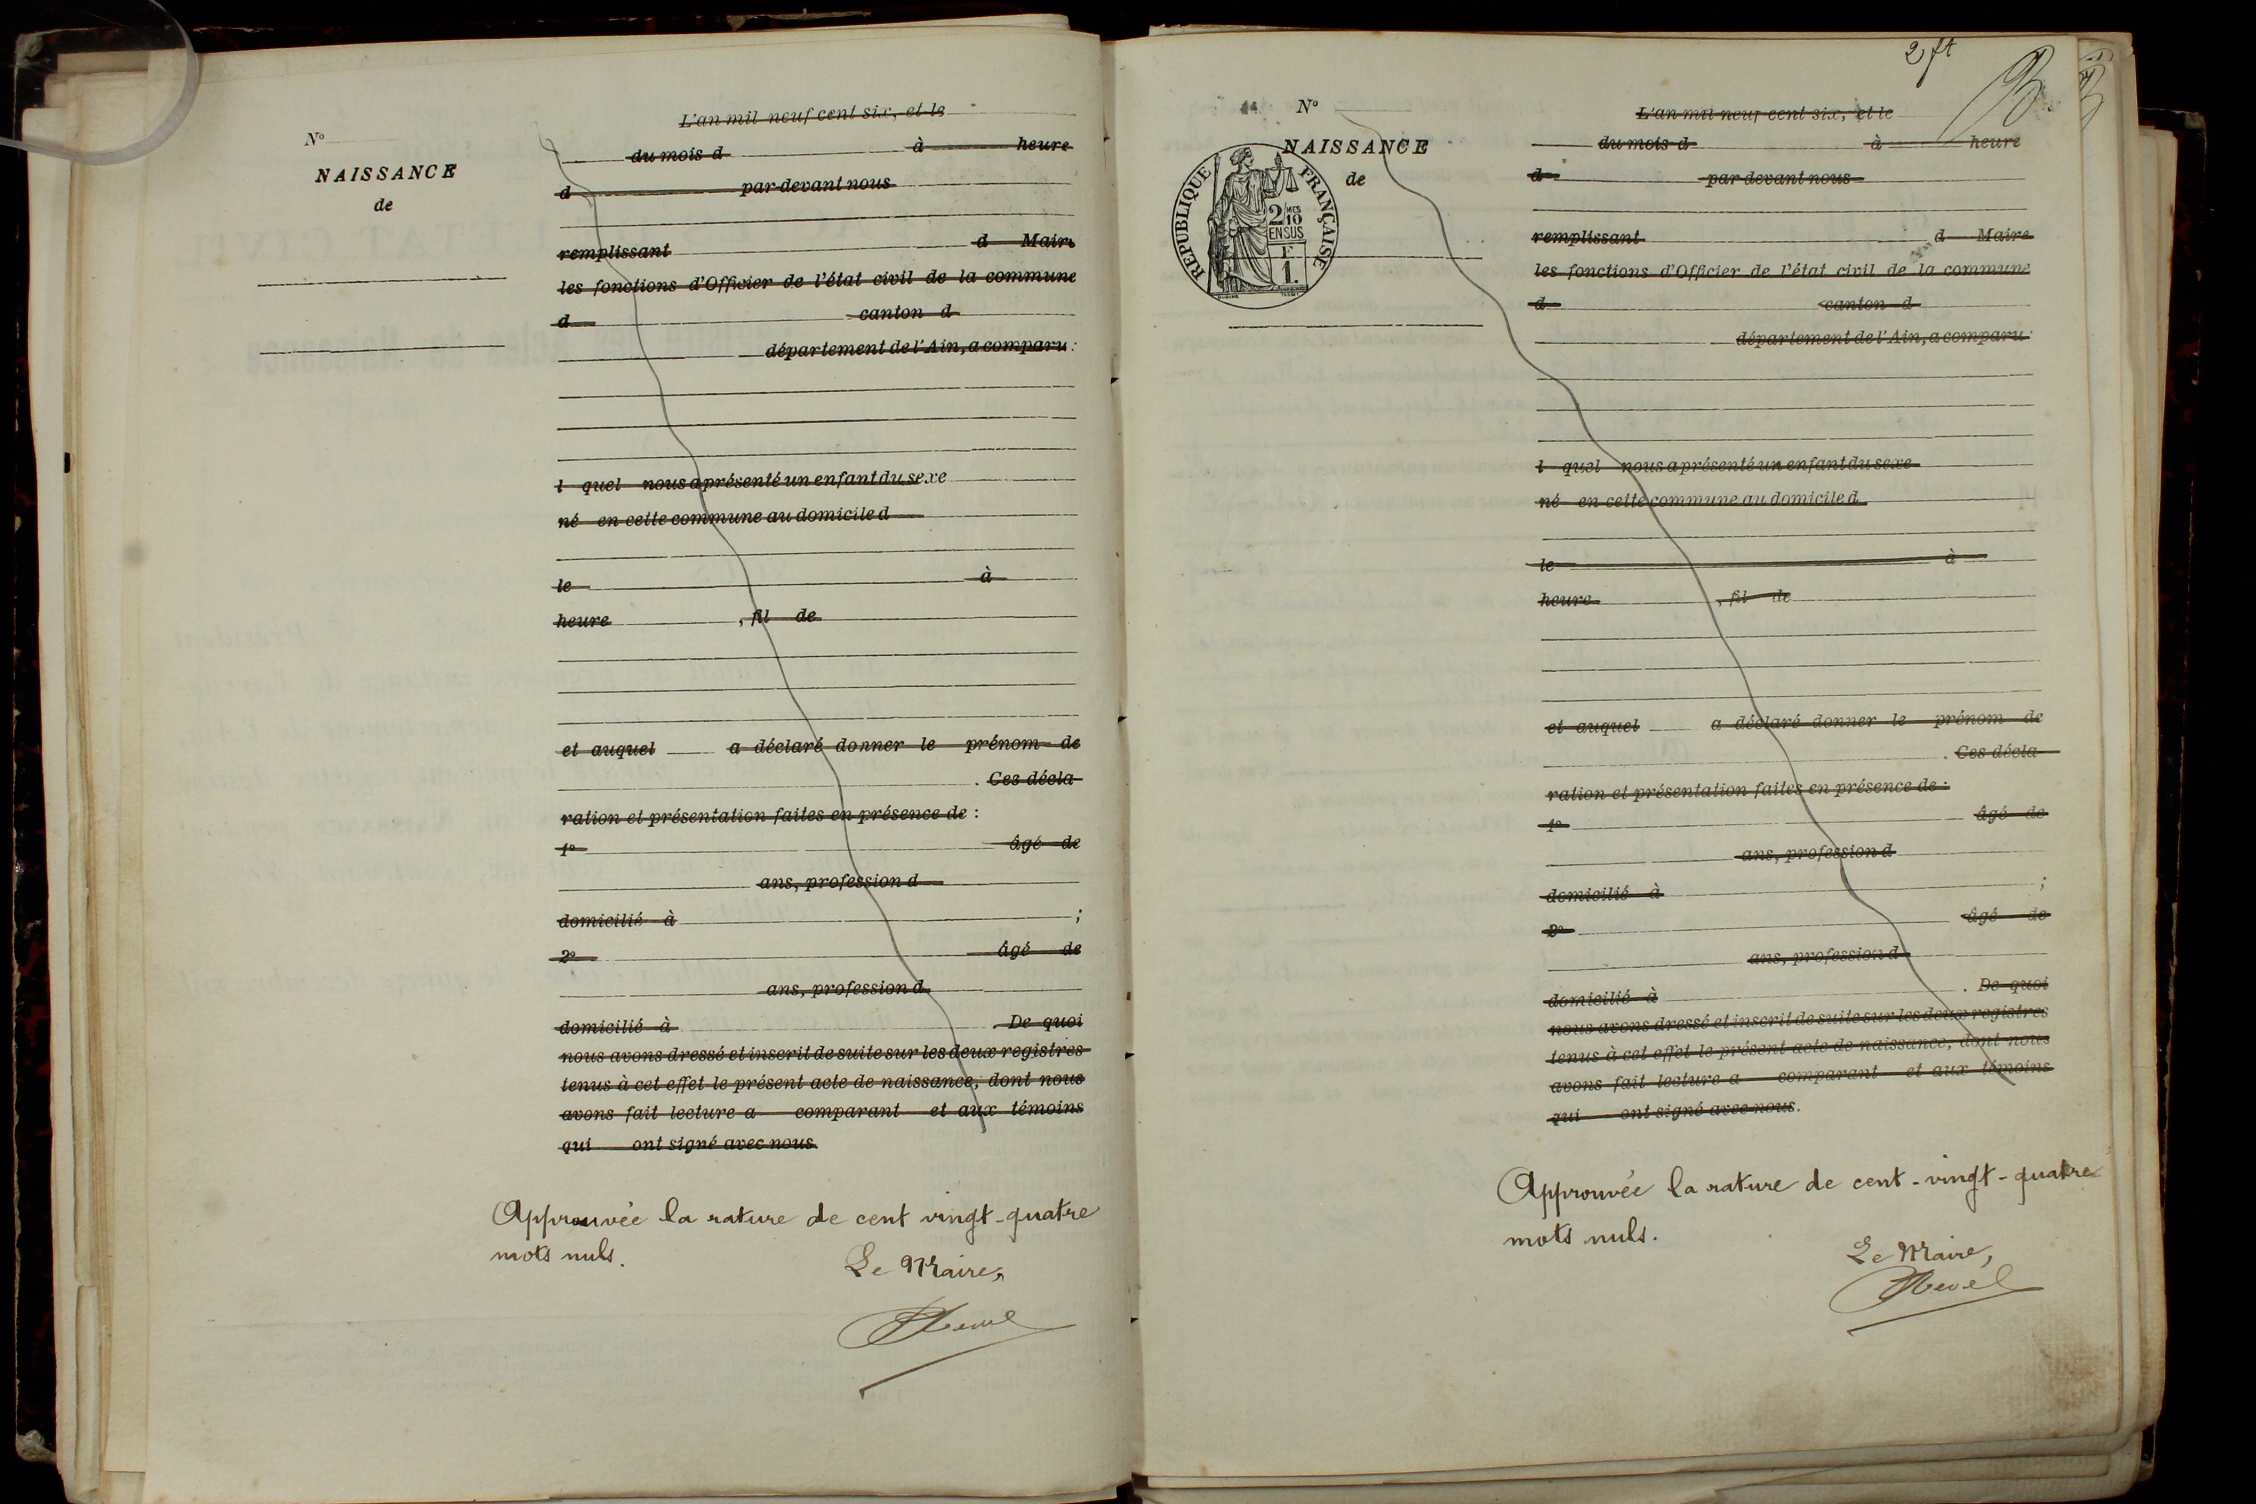 N°
NAISSANCE
de
L'an mil neuf cent six, et le
du mois d à heure
d par devant nous
remplissant d Maire
les fonctions d'Officier de l'état civil de la commune
d canton d
département de l'Ain, a comparu :
l quel nous a présenté un enfant du sexe
né en cette commune au domicile d
le à
heure , fil de
et auquel a déclaré donner le prénom de
. Ces décla
ration et présentation faites en présence de :
1° âgé de
ans, profession d
domicilié à ;
2° âgé de
ans, profession d
domicilié à . De quoi
nous avons dressé et inscrit de suite sur les deux registres
tenus à cet effet le présent acte de naissance, dont nous
avons fait lecture a comparant et aux témoins
qui ont signé avec nous.
Approuvée la rature de cent vingt-quatre
mots nuls.
Le Maire,
2 ft
N°
NAISSANCE
de
RÉPUBLIQUE FRANÇAISE
2/10 MES
EN SUS
F
1.
L'an mil neuf cent six, et le
du mois d à heure
d par devant nous
remplissant d Maire
les fonctions d'Officier de l'état civil de la commune
d canton d
département de l'Ain, a comparu :
l quel nous a présenté un enfant du sexe
né en cette commune au domicile d
le à
heure , fil de
et auquel a déclaré donner le prénom de
. Ces décla
ration et présentation faites en présence de :
1° âgé de
ans, profession d
domicilié à ;
2° âgé de
ans, profession d
domicilié à . De quoi
nous avons dressé et inscrit de suite sur les deux registres
tenus à cet effet le présent acte de naissance, dont nous
avons fait lecture a comparant et aux témoins
qui ont signé avec nous.
Approuvée la rature de cent-vingt-quatre
mots nuls.
Le Maire,